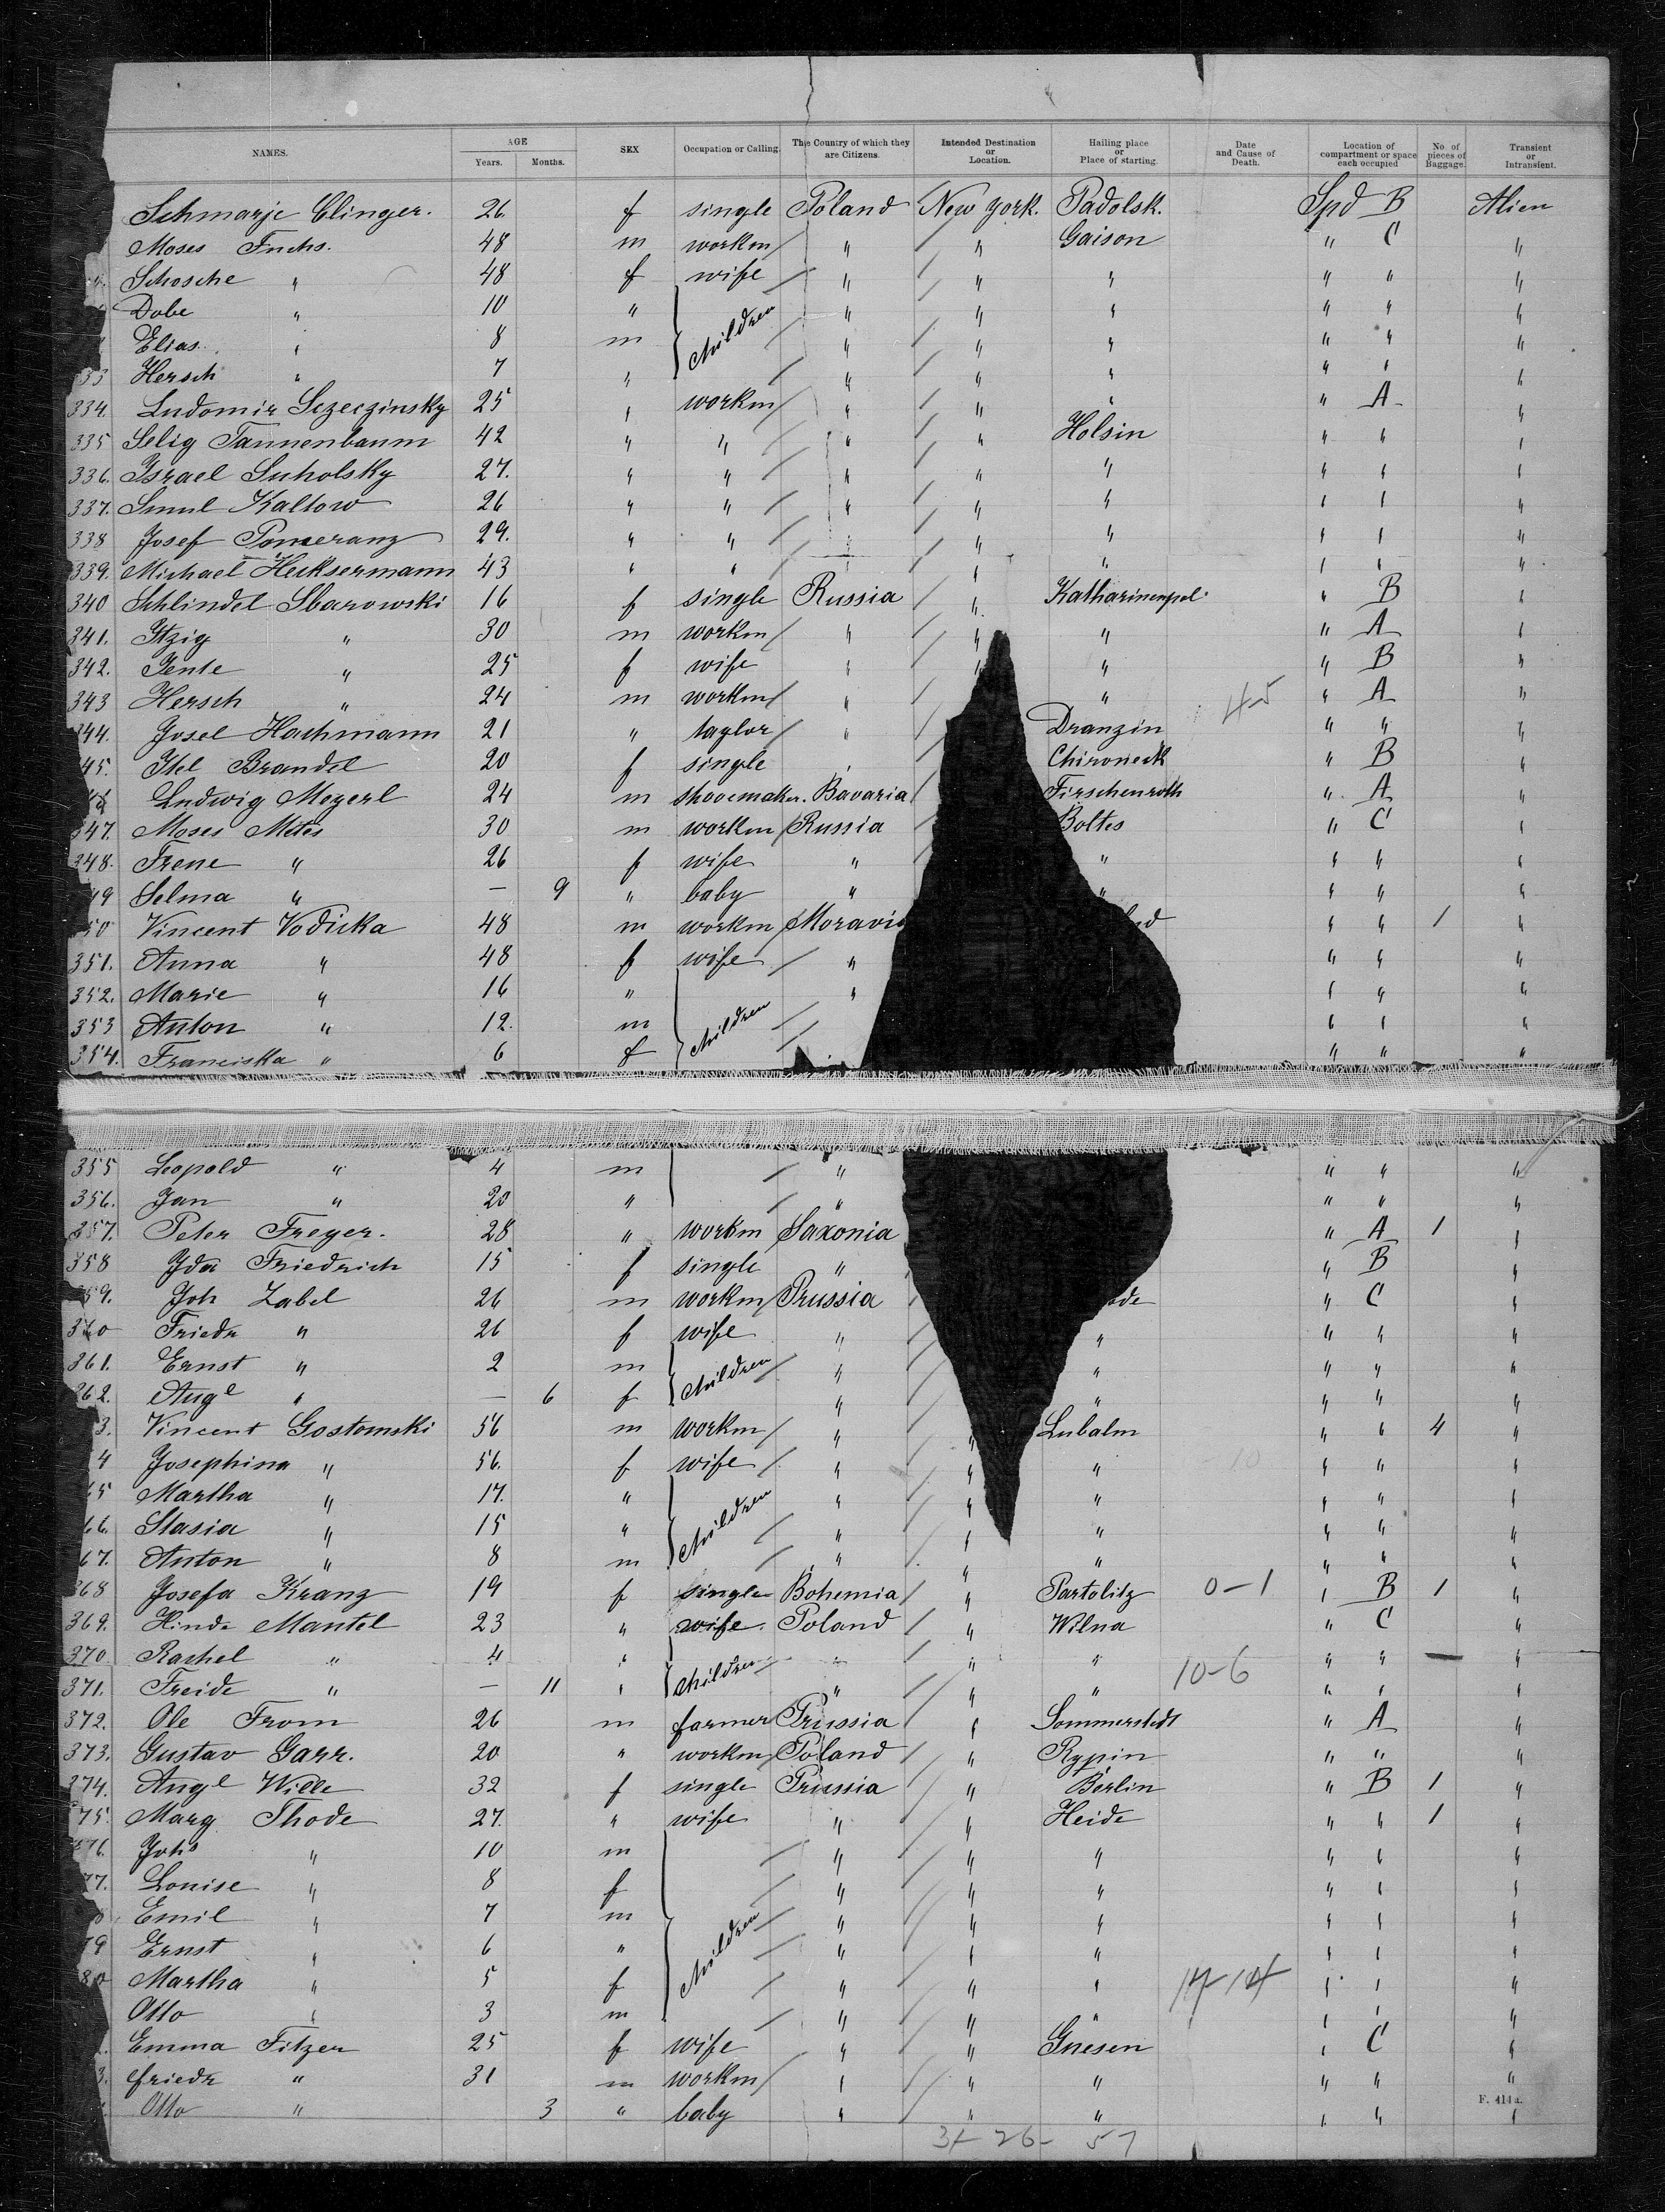 NAMES. AGE Years. Months. SEX Occupation or Calling. The Country of which they are Citizens. Intended Destination or Location. Hailing place or Place of starting. Date and Cause of Death. Location of compartment or space each occupied No. of pieces of Baggage. Transient or Intransient.
Schmarje Clinger. 26 f single Poland New York. Padolsk. Spd B Alien
Moses Fuchs. 48 m workm " " Gaison " C "
Schosche " 48 f wife " " " " " "
Dobe " 10 " children " " " " " "
Elias " 8 m " " " " " "
33 Hersch " 7 " " " " " " "
334. Ludomir Sczeczinsky 25 " workm " " " " A "
335 Selig Tannenbaum 42 " " " " Holsin " " "
336. Israel Sucholsky 27. " " " " " " " "
337. Smul Kaltow 26 " " " " " " " "
338 Josef Pomeranz 29. " " " " " " " "
339. Michael Hecksermann 43 " " " " " " " "
340 Schlindel Sbarowski 16 f single Russia " Katharinenpol. " B "
341. Itzig " 30 m workm " " " " A "
342. Jente " 25 f wife " " " " B "
343 Hersch " 24 m workm " " 45 " A "
344. Josel Hachmann 21 " taylor " Dranzin " " "
45. Itel Brandel 20 f single " Chironeck " B "
Ludwig Meyerl 24 m shoemaker. Bavaria Tirschenroth " A "
347. Moses Mites 30 m workm Russia Boltes " C "
348. Frene " 26 f wife " " " " "
49 Selma " — 9 " baby " " " " "
50 Vincent Vodicka 48 m workm Moravia " " 1 "
351. Anna " 48 f wife " " " "
352. Marie " 16 " children " " " "
353 Anton " 12. m " " "
354. Franciska " 6 f " " "
355 Leopold " 4 m " " " "
356. Jan " 20 " " " " "
357. Peter Freyer. 28 " workm Saxonia " A 1 "
358 Ida Friedrich 15 f single " " B "
59. Joh Zabel 26 m workm Prussia " C "
360 Friedr " 26 f wife " " " " "
361. Ernst " 2 m children " " " " "
362. Augᵉ " — 6 f " " " " "
3. Vincent Gostomski 56 m workm " " Lubalm " " 4 "
4 Josephina " 56. f wife " " " " " "
65 Martha " 17. " children " " " " " "
66. Stasia " 15 " " " " " " "
67. Anton " 8 m " " " " " "
368 Josefa Kranz 19 f single Bohemia " Partolitz 0-1 " B 1 "
369. Hinde Mantel 23 " wife. Poland " Wilna " C "
370 Rachel " 4 " children " " " 10-6 " " — "
371. Freide " — 11 " " " " " " "
372. Ole From 26 m farmer Prussia " Sommerstedt " A "
373. Gustav Garr. 20 " workm Poland " Rypin " " "
374. Augᵉ Wille 32 f single Prussia " Berlin " B 1 "
75. Marg Thode 27. " wife " " Heide " " 1 "
376. Johˢ " 10 m children " " " " " "
77. Louise " 8 f " " " " " "
Emil " 7 m " " " " " "
79 Ernst " 6 " " " " " " "
80 Martha " 5 f " " " 14 " " "
Otto " 3 m " " " " " "
Emma Fitzer 25 f wife " " Gnesen " C "
3. Friedr " 31 m workm " " " " " "
Otto " 3 " baby " " " " " "
F. 414a.
31 - 26 - 57